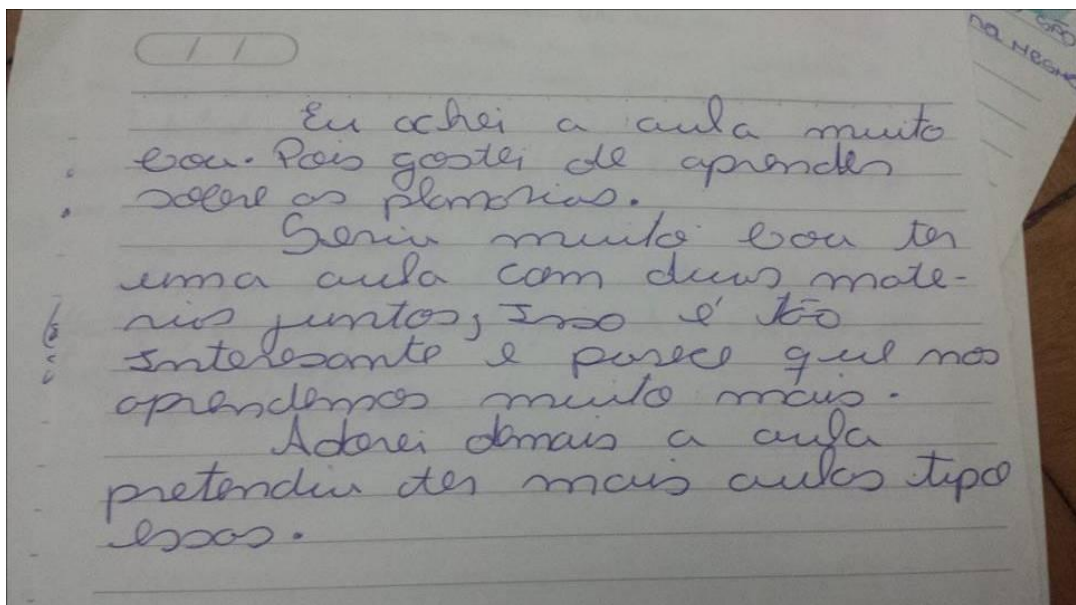 Eu achei a aula muito
boa. Pois gostei de aprender
sobre as planarias.
Seria muito boa ter
uma aula com duas mate-
rias juntas, Isso é tão
Interesante e parece que nos
aprendemos muito mais.
Adorei demais a aula
pretendia ter mais aulas tipo
essas.
na mesma